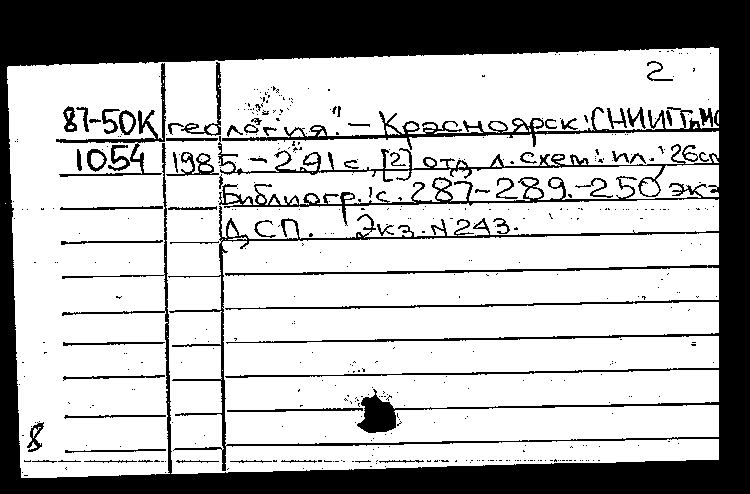 2
87-50К геология." – Красноярск: СНИИГГиМС
1054 1985. – 291 с., [2] отд. л. схем: ил.; 26см
Библиогр.: с. 287-289. – 250 экз
ДСП. Экз. N 243.
8